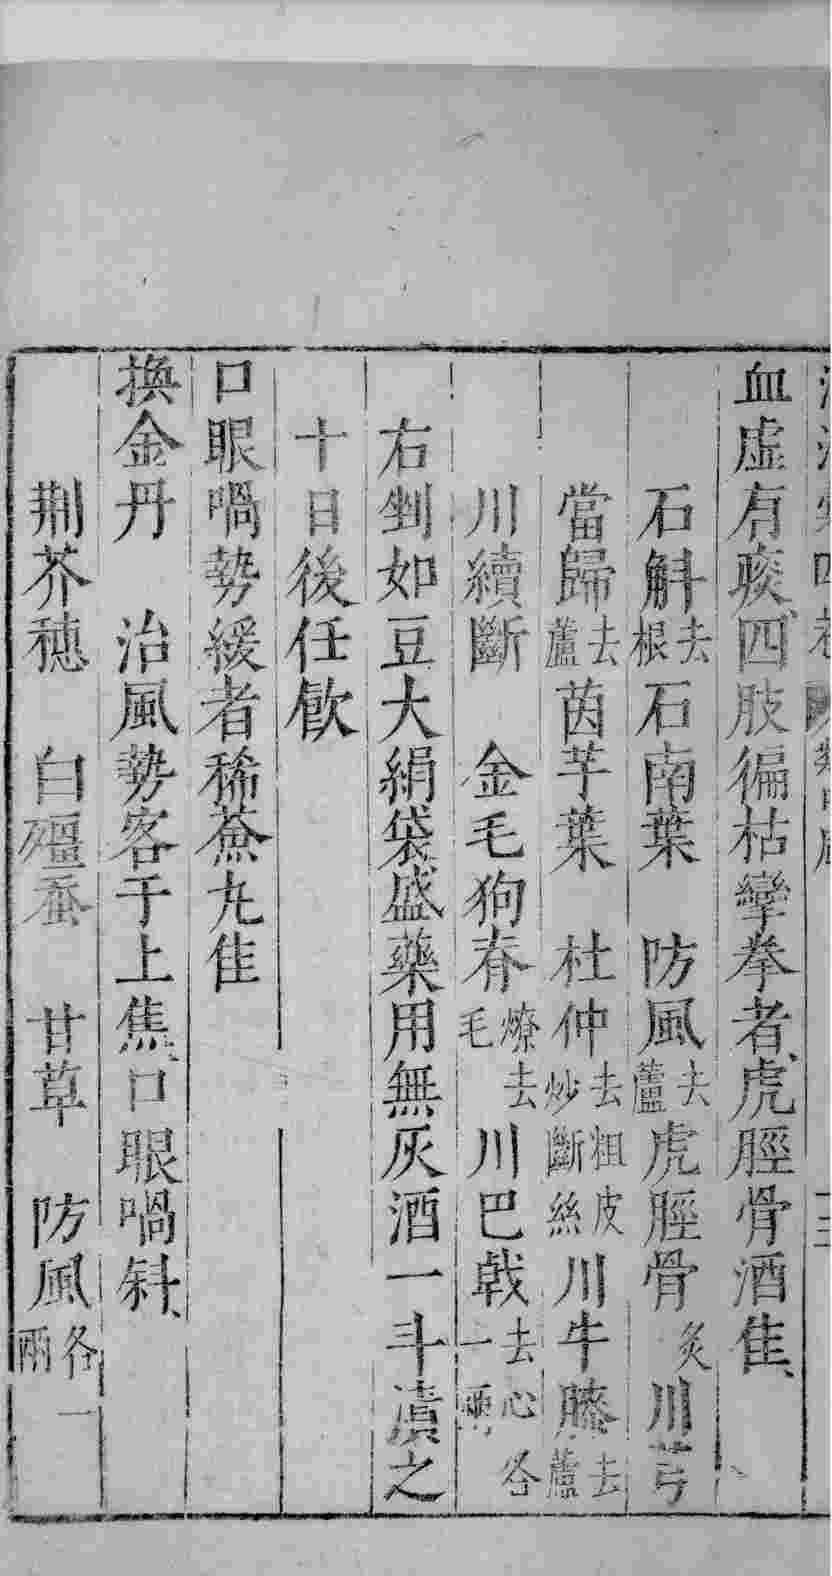 血虛有痰四肢徧枯攣拳者虎脛骨酒佳
石斛去根石南葉　防風去蘆虎脛骨炙川芎
當歸去蘆茵芋葉　杜仲去粗皮炒斷絲川牛膝去蘆
川續斷　金毛狗脊燎去毛川巴戟去心各一兩
右剉如豆大絹袋盛藥用無灰酒一斗漬之
十日後任飮
口眼喎勢緩者稀薟丸佳
換金丹　治風勢客于上焦口眼喎斜
荆芥穗　白殭蚕　甘草　防風各一兩